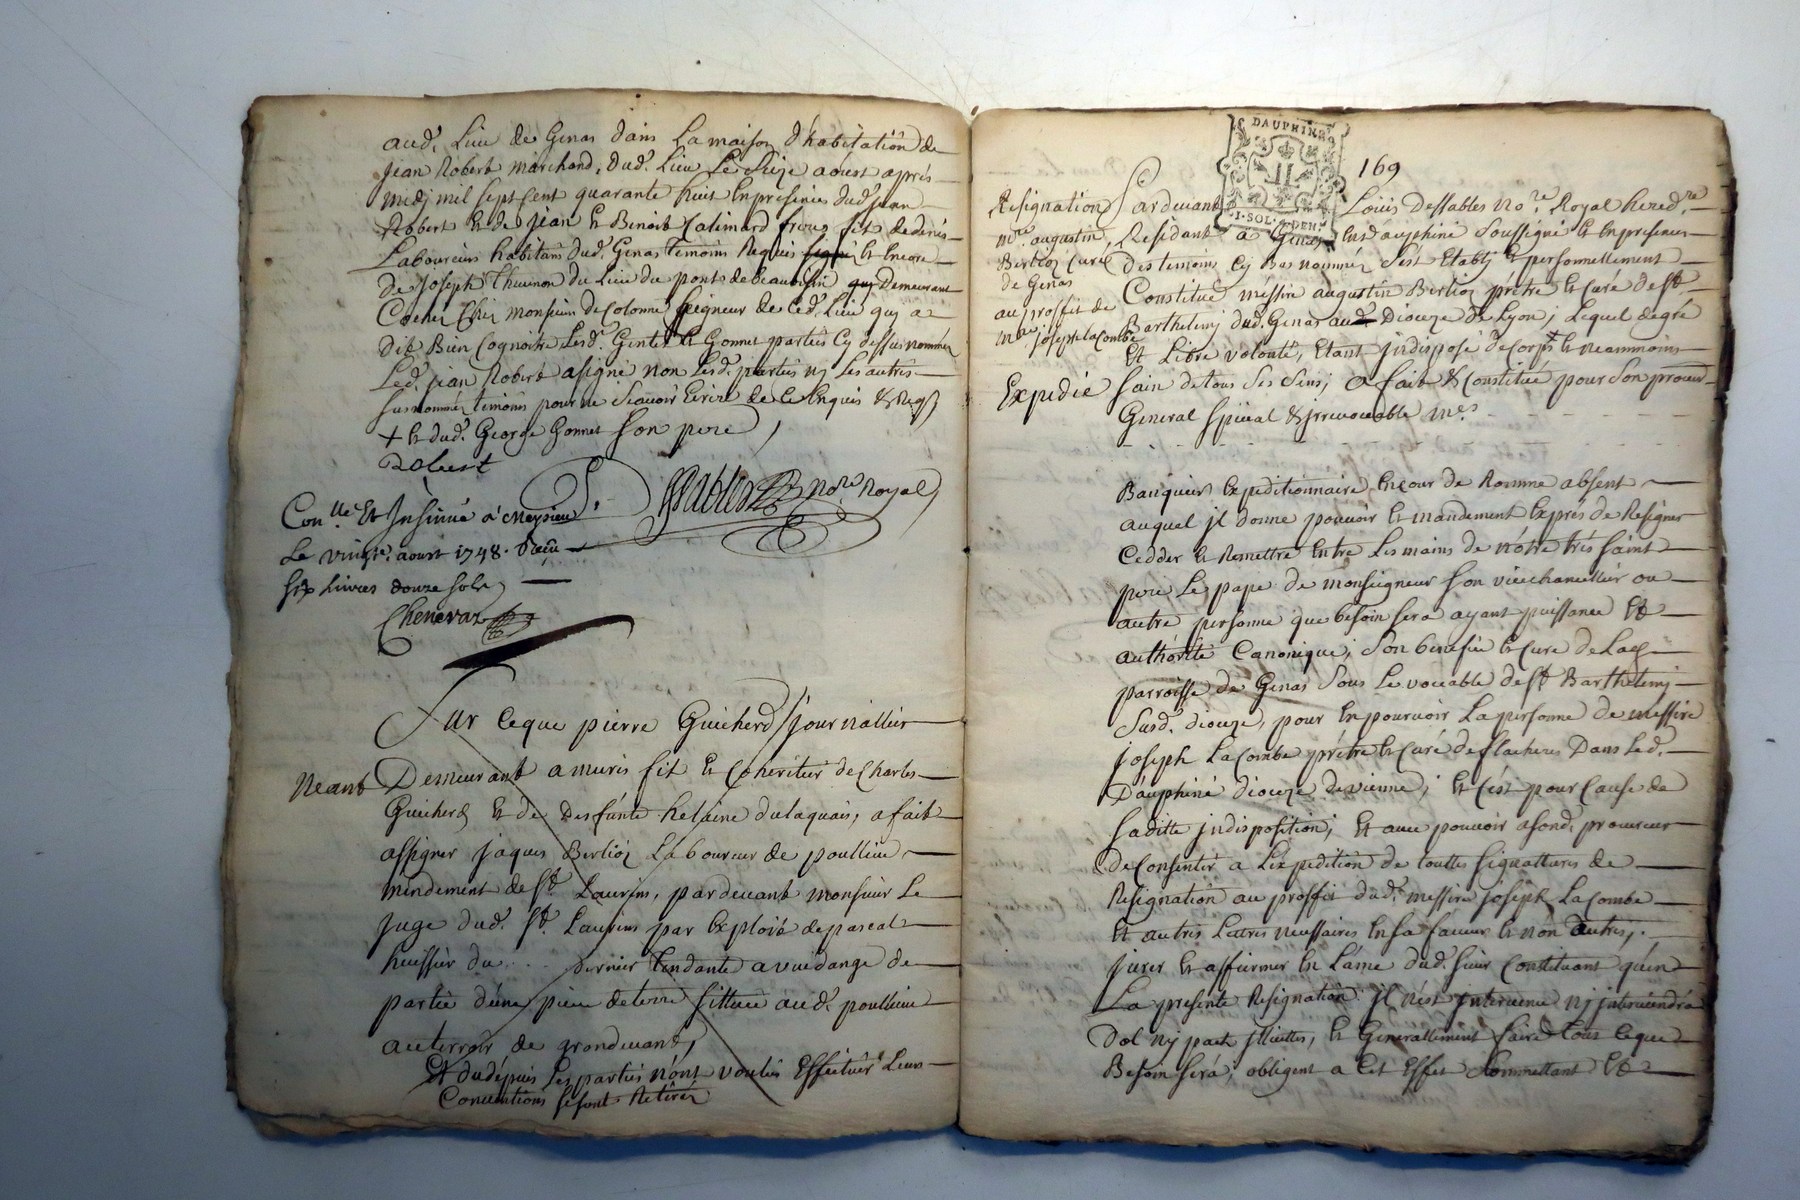 aud. Lieu de Genas dans La maison d'habitation de
Jean Robert marchand, dud. Lieu Le Seize aoust après
midj mil sept Cent quarante huit En presences dud. jean
Robert et de jean et Benoit Calimard freres fils de denis
Laboureurs habitans dud. Genas temoins Requis signé et encore
de joseph Thuvinon du Lieu du pont de Beauvoisin quj Demeurant
Cocher Chez monsieur de Colonne seigneur de Ced. Lieu quj a
dit Bien Cognoitre Lesd. Gentet et Gonnet parties Cy dessus nommés
Led. jean Robert a signé non Lesd. parties nj Les autres
susnommés temoins pour ne Scavoir Ecrire de ce Enquis & Reqs
+ et dud. George Gonnet son pere
Robert
Dessables No.re Royal
Con.lle et Insinué à Meysieu
Le vingt.e aoust 1748. Reçu
six Livres douze sols
Chenevaz
Sur Ceque pierre Guicherd journallier
Neant
Demeurant a muris fils et Coheritier de Charles
Guicherd et de Desfunte helaine dulaquais, a fait
assigner jaques Berlioz Laboureur de poullieu
mendement de St Laurins, pardevant monsieur Le
juge dud. St. Laurins par Exploit de pascal
huissier du . . . dernier tendante a vuidange de
partie d'une piece de terre sittuee aud. poullieu
au terroir de grandmand,
Et du depuis Les parties n'ont voulus Effectuer Leurs
Conventions se sont Retirés
DAUPHINE
II
I·SOL·
DEN
169
Resignation
m.re augustin
Berlioz Curé
de Genas
au proffit de
m.re joseph la Combe
Expedié
Pardevant Loüis Dessables No.re Royal hered.re
Residant a Genas En dauphiné Soussigné et En presences
des temoins Cy Bas nommés S'est Etablj et personnellement
Constitué messire augustin Berlioz prétre et Curé de St
Barthelemj dud. Genas aud. Dioceze de Lyon, Lequel de gré
Et Libre volonté, Etant jndisposé de Corps et neanmoins
sain de tous Ses Sens, a fait & Constitué pour Son procur
General spécial & jrrevocable me.s - - - -
Banquier Expeditionnaire En cour de Romme absent
auquel jl donne pouvoir et mandement Exprés de Resigner
Cedder et Remettre Entre Les mains de nôtre trés saint
pere Le pape de monseigneur Son vicechancellier ou
autre personne que besoin sera ayant puissance Et
authorité Canonique, Son benefice et Cure de Lad.
parroisse de Genas sous Le vocable de St Barthelemj
Susd. dioceze, pour En pourvoir La personne de messire
joseph La Combe prétre et Curé de flacheres Dans Led.
Dauphiné dioceze de vienne, Et c'est pour Cause de
sa ditte jndisposition, Et avec pouvoir a sond. procureur
de Consentir a L'expedition de touttes signattures de
Resignation au proffit dud. messire joseph La Combe
Et autres Lettres necessaires En sa faveur et non autres,
jurer et affirmer En L'ame dud. sieur Constituant qu'en
La presente Resignation jl n'est jntervenu nj jnterviendra
Dol nj pact jllicittes, et Generallement faire tout Ceque
Besoin sera, obligent a Cet Effet sommettant Et